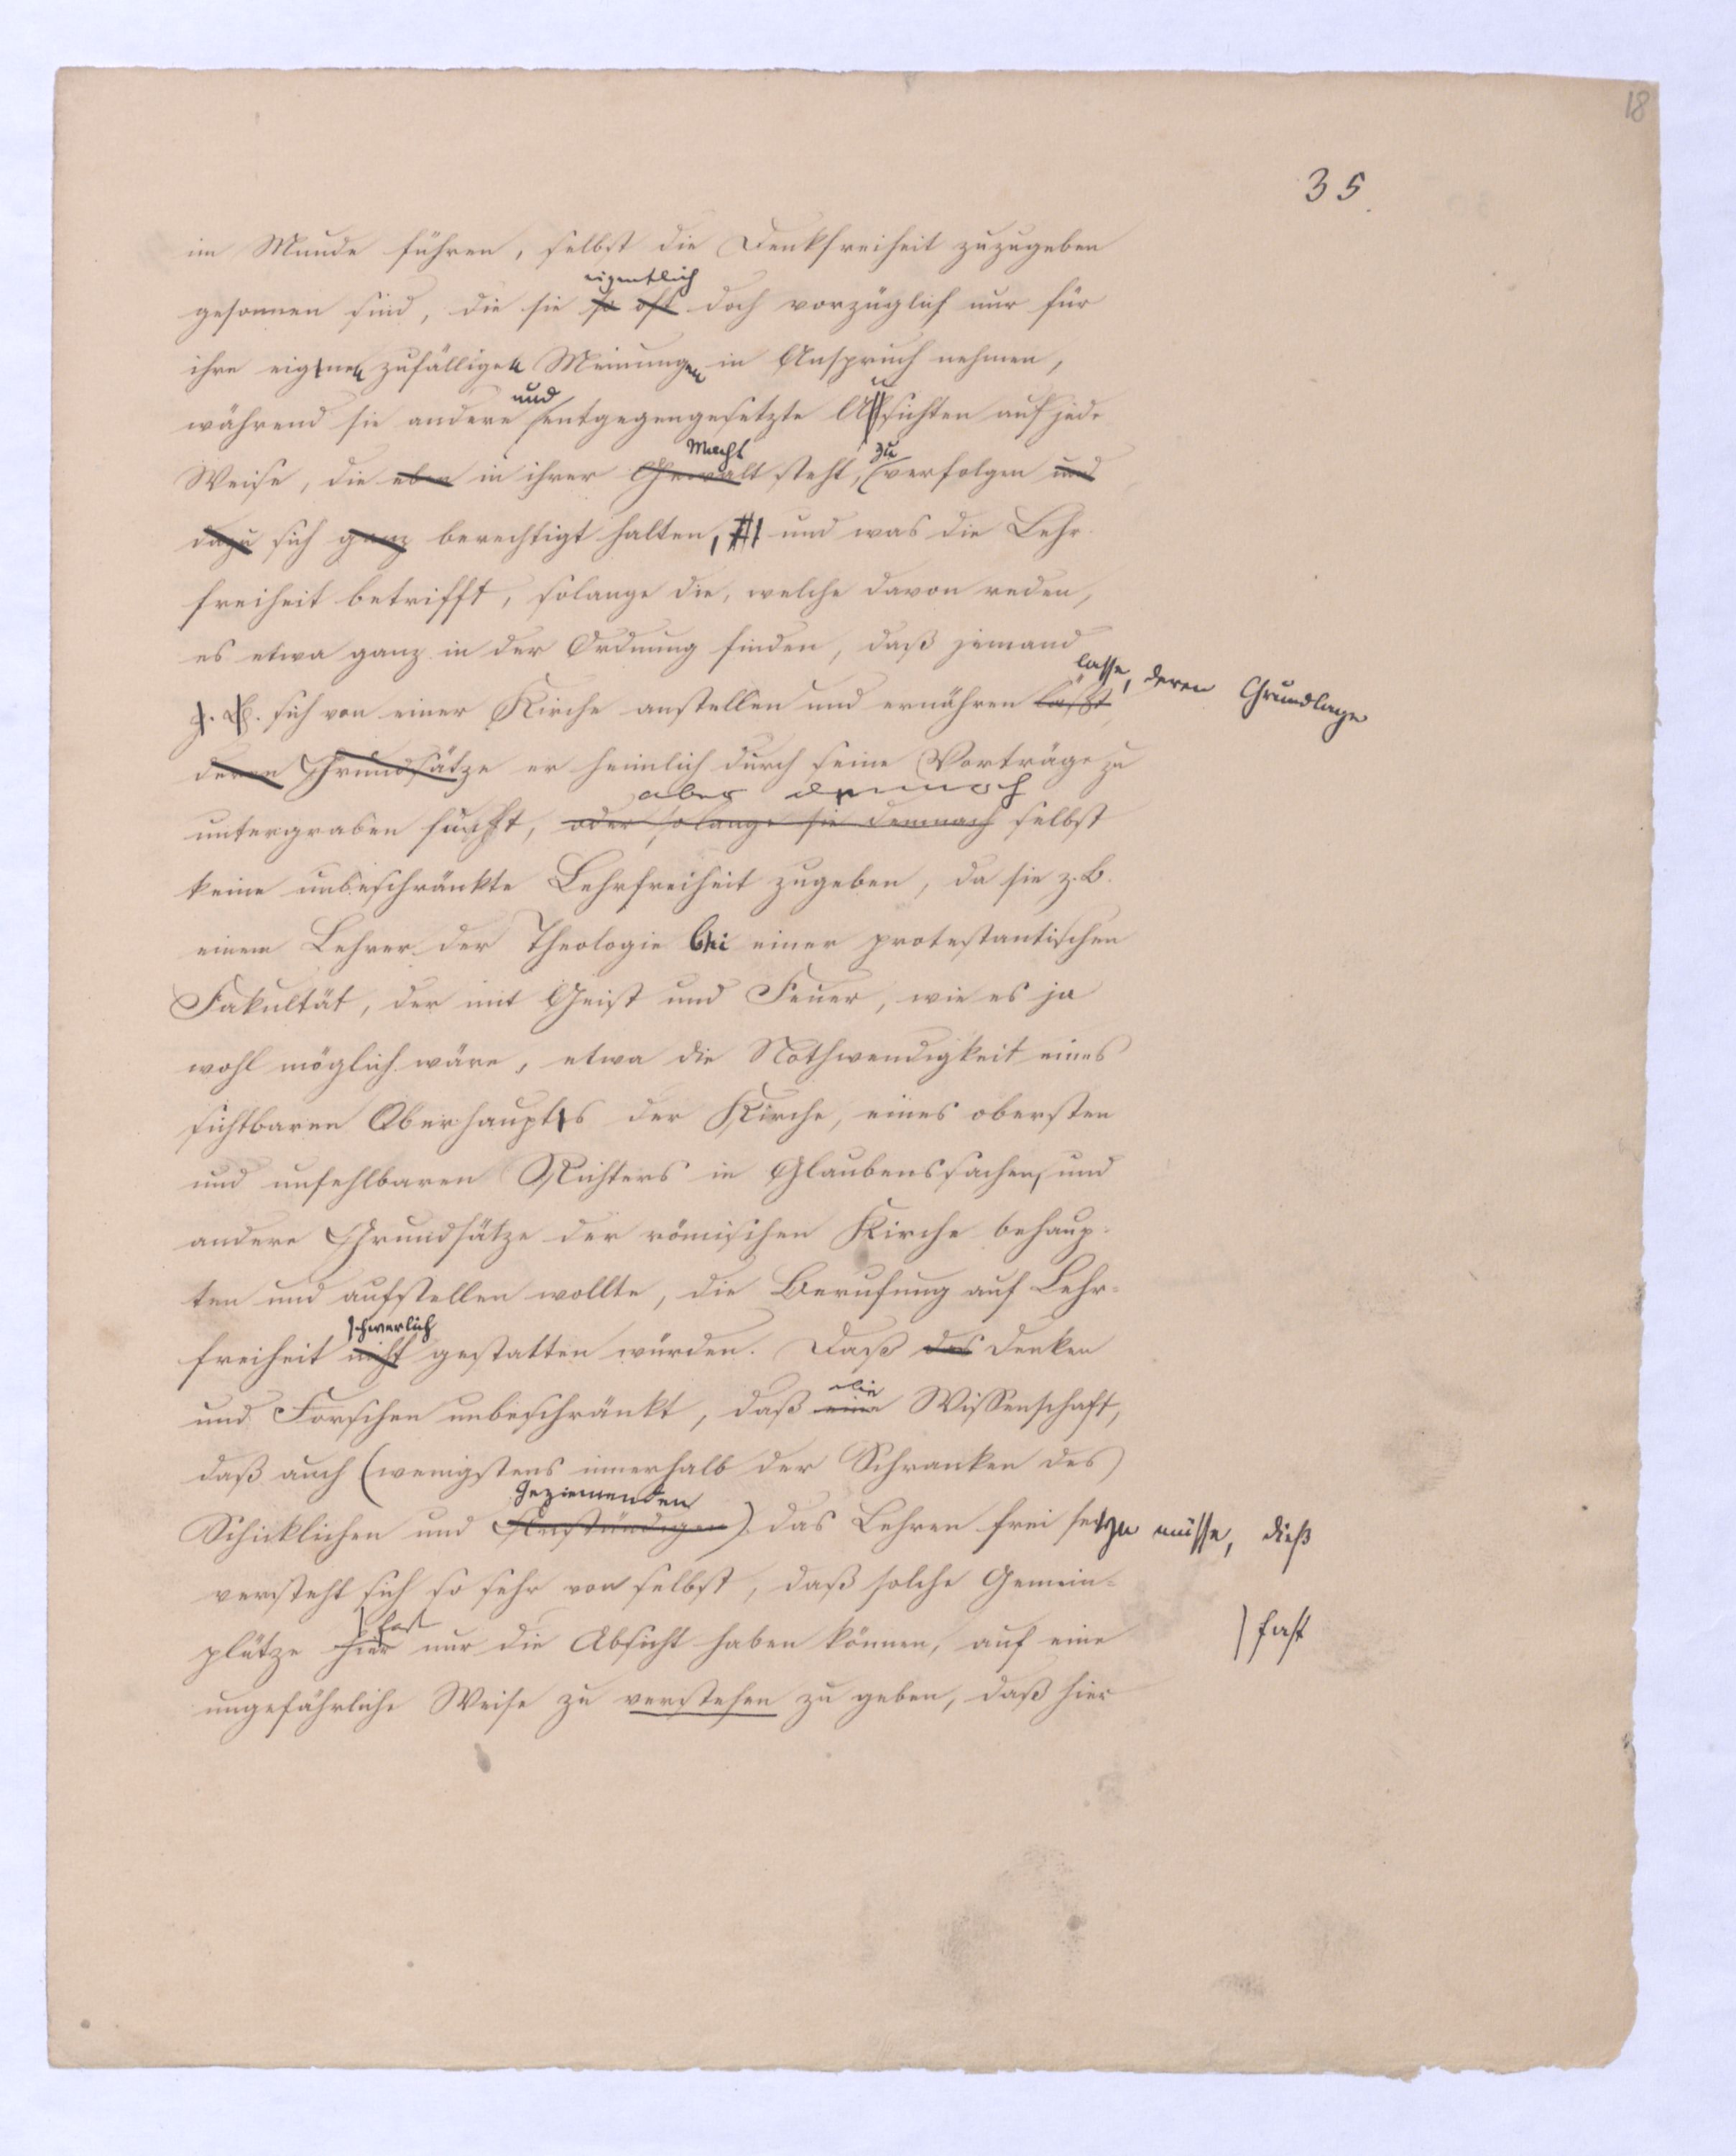 18
35.
im Munde führen, selbst die Denkfreiheit zuzugeben
eigentlich
gesonnen sind, die sie so oft doch vorzüglich nur für
ihre eignen zufälligen Meinungen in Anspruch nehmen,
und
während sie andere entgegengesetzte Ansichten auf jede
Macht zu
Weise, die eben in ihrer Gewalt steht, verfolgen und
dazu sich ganz berechtigt halten, und was die Lehr-
freiheit betrifft, solange die, welche davon reden,
es etwa ganz in der Ordnung finden, daß jemand
lasse, deren Grundlage
z. B. sich von einer Kirche anstellen und ernähren läßt,
deren Grundsätze er heimlich durch seine Vorträge zu
aber dennoch
untergraben sucht, oder solange sie demnach selbst
keine unbeschränkte Lehrfreiheit zugeben, da sie z. B.
einem Lehrer der Theologie bei einer protestantischen
Fakultät, der mit Geist und Feuer, wie es ja
wohl möglich wäre, etwa die Nothwendigkeit eines
sichtbaren Oberhaupts der Kirche, eines obersten
und unfehlbaren Richters in Glaubenssachen, und
andere Grundsätze der römischen Kirche behaup-
ten und aufstellen wollte, die Berufung auf Lehr-
schwerlich
freiheit nicht gestatten würden. Daß das Denken
die
und Forschen unbeschränkt, daß eine Wissenschaft,
daß auch (wenigstens innerhalb der Schranken des
Geziemenden
Schicklichen und Anständigen) das Lehren frei seyn müsse, dieß
versteht sich so sehr von selbst, daß solche Gemein-
fast
plätze hier nur die Absicht haben können, auf eine
fast
ungefährliche Weise zu verstehen zu geben, daß hier